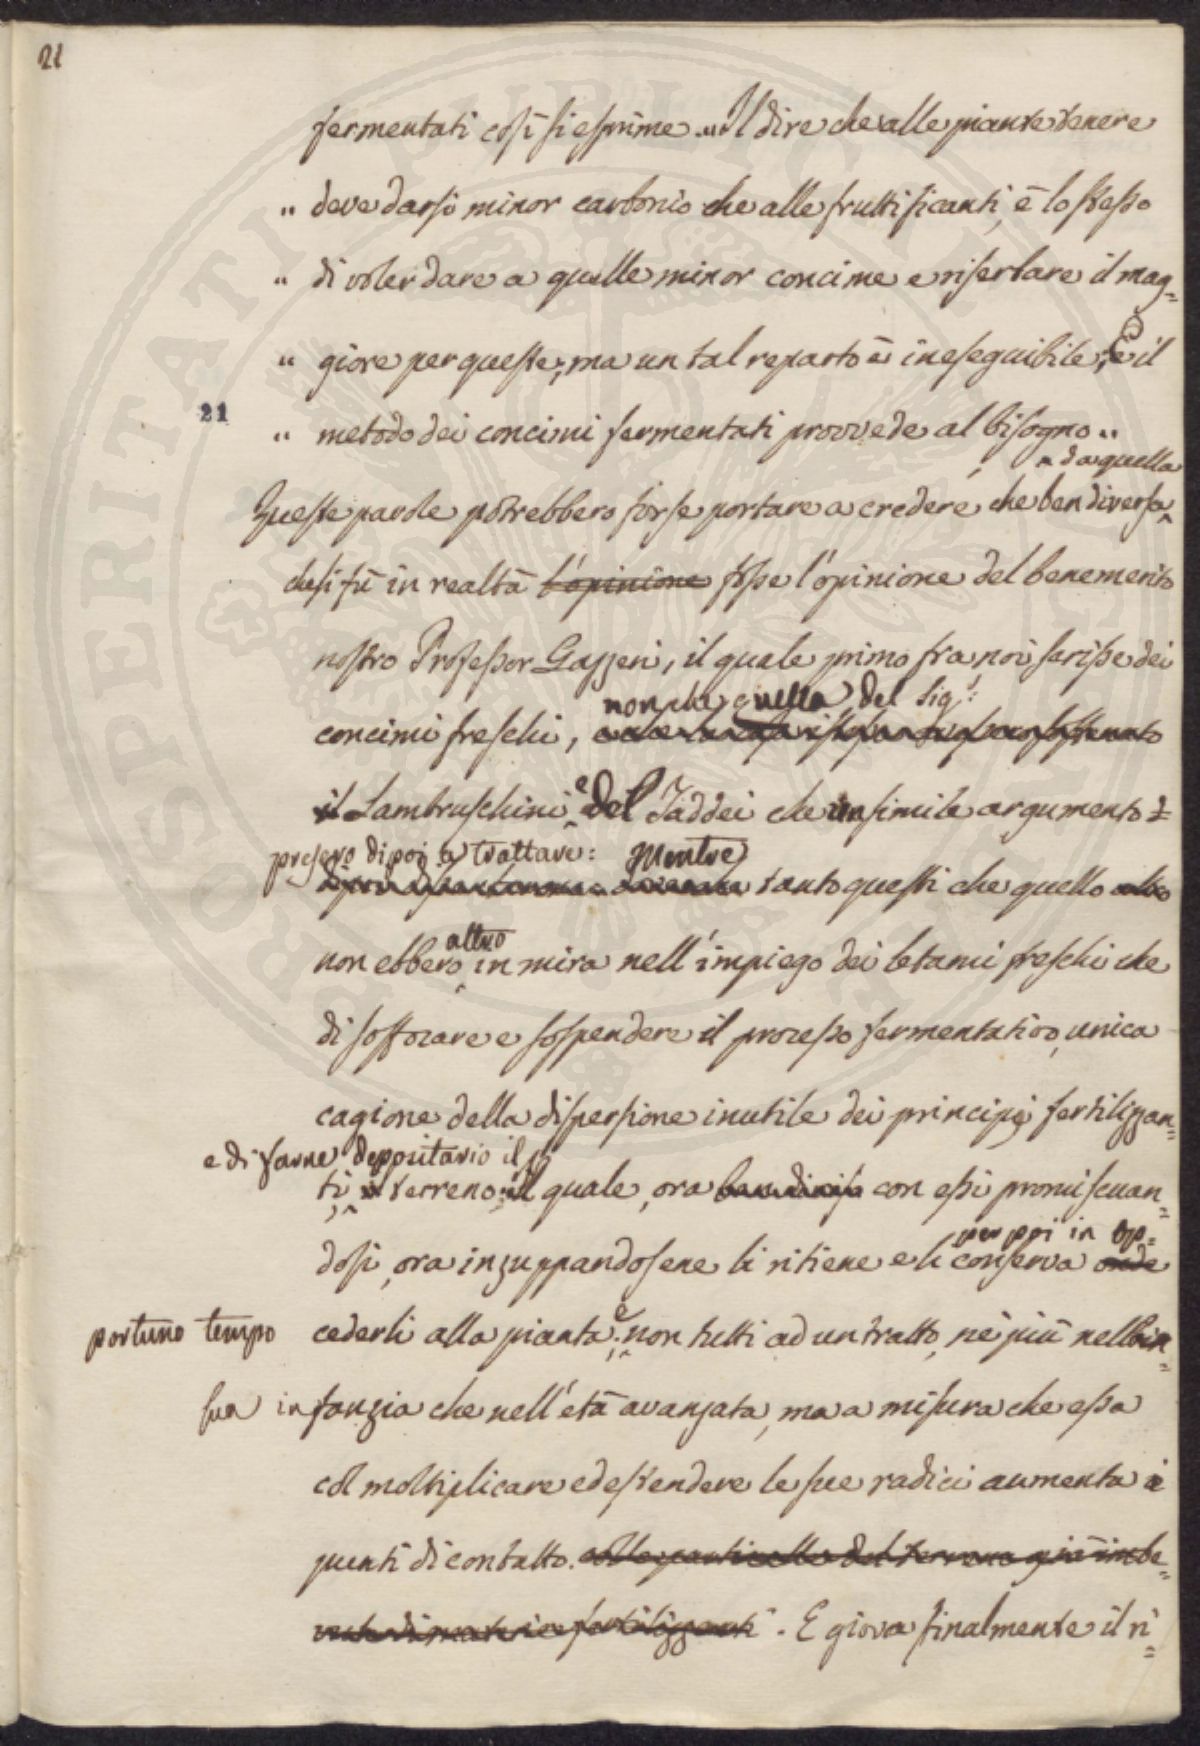 21
fermentati così si esprime „ Il dire che alle piante tenere
„ deve darsi minor carbonio che alle fruttificanti, è lo stesso
„ di voler dare a quelle minor concime e riserbare il mag=
„ giore per queste; ma un tal reparto è ineseguibile, e il
21
„ metodo dei concimi fermentati provvede al bisogno „
da quella
Queste parole potrebbero forse portare a credere, che ben diversa
che si fù in realtà l'opinione fosse l'opinione del benemerito
nostro Professor Gazzeri, il quale primo fra noi scrisse dei
non che quella del Sig.r
concimi freschi,
il Lambruschini e del Taddei che un simile argumento
presero di poi a trattare: Mentre
tanto questi che quello altro
altro
non ebbero in mira nell'impiego dei letami freschi che
di soffocare e sospendere il processo fermentativo, unica
cagione della dispersione inutile dei principj fertilizzan=
e di farne depositario il
ti, il terreno; il quale, ora con essi promiscuan=
per poi in op=
dosi, ora inzuppandosene li ritiene e li conserva onde
portuno tempo cederli alla pianta; e non tutti ad un tratto, nè più nella in=
sua infanzia che nell'età avanzata, ma a misura che essa
col moltiplicare ed estendere le sue radici aumenta i
punti di contatto. colle particelle del terreno già imbe=
vute di materie fertilizzanti. E giova finalmente il ri=
PROSPERITATI PUBLICAE AUGENDAE